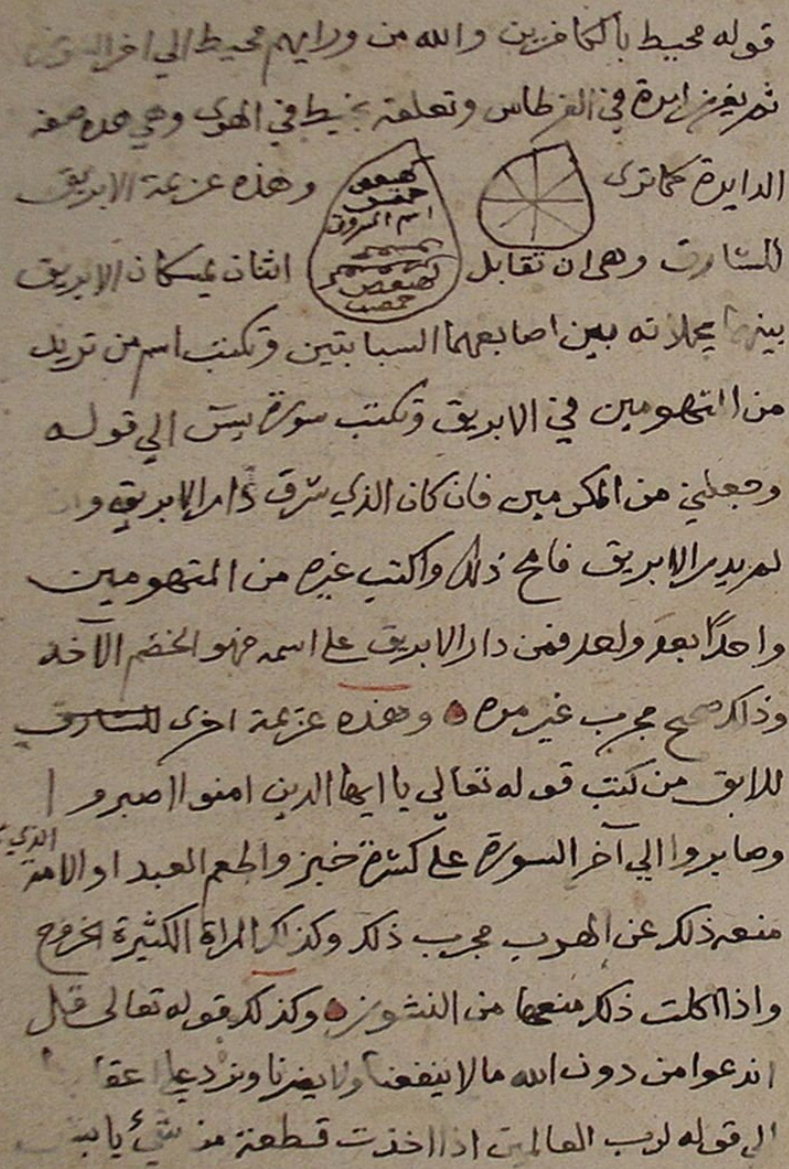 قوله محيط بالكافرين والله من ورايهم محيط الي اخر السورة
ثم يغرز ابرة في القرطاس وتعلقه بخيط في الهوى وهي هده صفة
الدايرة كماترى وهذه عزيمة الابريق
كهيعص
حمعسق
اسم المسروق
كهيعص
للسارق وهي ان تقابل اثنان يمسكان الابريق
بينهما يحملانه بين اصابعهما السبابتين وتكتب اسم من تريد
من المتهومين في الابريق وتكتب سورة يس الي قوله
وجعلني من المكرمين فان كان الذي سرق دار الابريق وان
لم يدير الابريق فامح ذلك واكتب غيره من المتهومين
واحدًا بعد واحد فمن دار الابريق على اسمه فهو الخصم الآخد
وذلك صحيح مجرب غير مره وهذه عزيمة اخرى للسارق
للابق من كتب قوله تعالي يا ايها الدين امنوا اصبروا
وصابروا الي آخر السورة على كسرة خبز واطعم العبد او الامة الذي
منعه ذلك عن الهرب مجرب ذلك وكذلك المراة الكثيرة الخروج
واذا اكلت ذلك منعها من النشوز وكذلك قوله تعالى قل
اندعوا من دون الله مالا ينفعنا ولا يضرنا ونرد على اعقابنا
الى قوله لرب العالمين اذا اخذت قطعة من شيء يابس